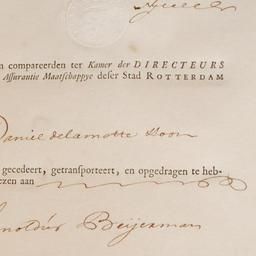 n compareerden ter Kamer der DIRECTEURS
Assurantie Maatschappye deser Stad ROTTERDAM
Daniel delamotte Soon
gecedeert, getransporteert, en opgedragen te heb-
ezen aan
noldus Beijerman